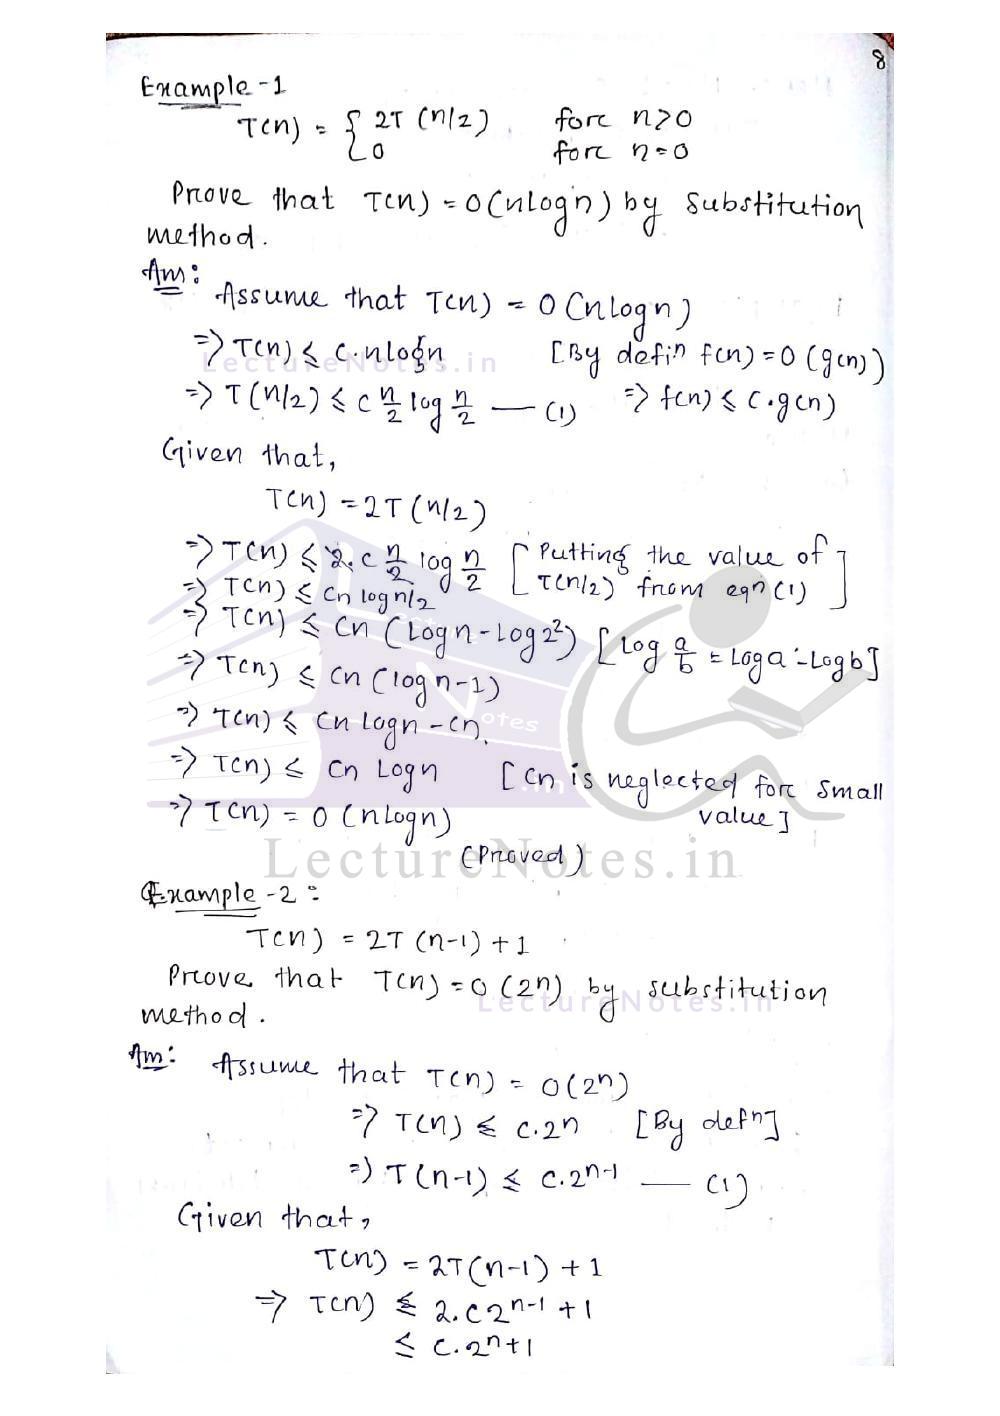 8
Example-1
T(n) = { 2T(n/2), for n>0
0 for n=0
Prove that T(n) = O(nlogn) by substitution
method.
Ans:
Assume that T(n) = O(nlogn)
⇒ T(n) ≤ c.nlogn [By defiⁿ f(n) = O(g(n))
LectureNotes.in
⇒ T(n/2) ≤ c n/2 log n/2 — (1) ⇒ f(n) ≤ c.g(n)
Given that,
T(n) = 2T(n/2)
⇒ T(n) ≤ 2.c n/2 log n/2 [Putting the value of
T(n/2) from eqn(1)]
⇒ T(n) ≤ cn log n/2
⇒ T(n) ≤ cn (logn - log2²) [log a/b = loga - logb]
⇒ T(n) ≤ cn (logn-1)
⇒ T(n) ≤ cn logn - cn.
⇒ T(n) ≤ cn logn [cn is neglected for small
value]
⇒ T(n) = O(nlogn)
(Proved)
LectureNotes.in
Example-2:
T(n) = 2T(n-1)+1
Prove that T(n) = O(2n) by substitution
LectureNotes.in
method.
Ans: Assume that T(n) = O(2ⁿ)
⇒ T(n) ≤ c.2n [By defn].
⇒ T(n-1) ≤ c.2ⁿ⁻¹ — (1)
Given that,
T(n) = 2T(n-1)+1
⇒ T(n) ≤ 2.c2ⁿ⁻¹+1
≤ c.2ⁿ+1